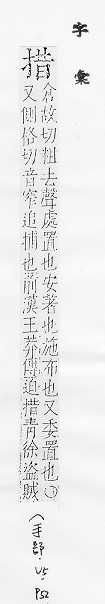 字彙
措
倉故切粗去聲處置也安著也施布也又委置也○
又側格切音窄追捕也前漢王莽傳迫措青徐盜賊
(手部.U5.P52